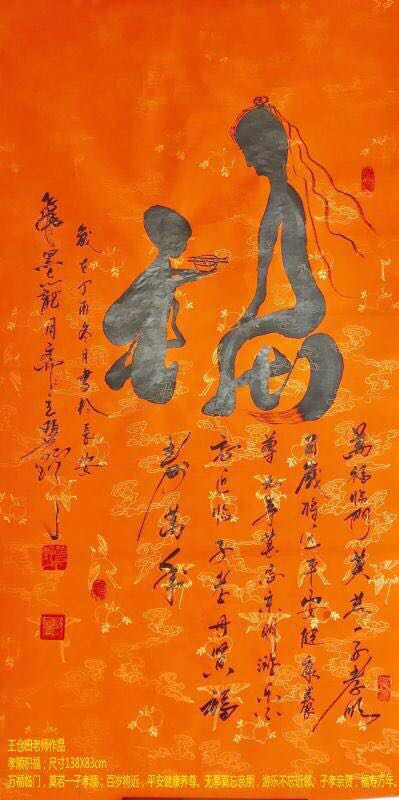 福
萬福临门莫若一子孝順
百歲将近平安健康養
尊無事莫忘亲朋游乐不
忘近临子孝母賢福
寿萬年
歲在丁酉冬月書於長安
墨龍
王仓田老师作品
孝顺积福；尺寸138X83cm
万福临门，莫若一子孝顺；百岁将近，平安健康养尊。无事莫忘亲朋，游乐不忘近邻。子孝亲贤，福寿万年。